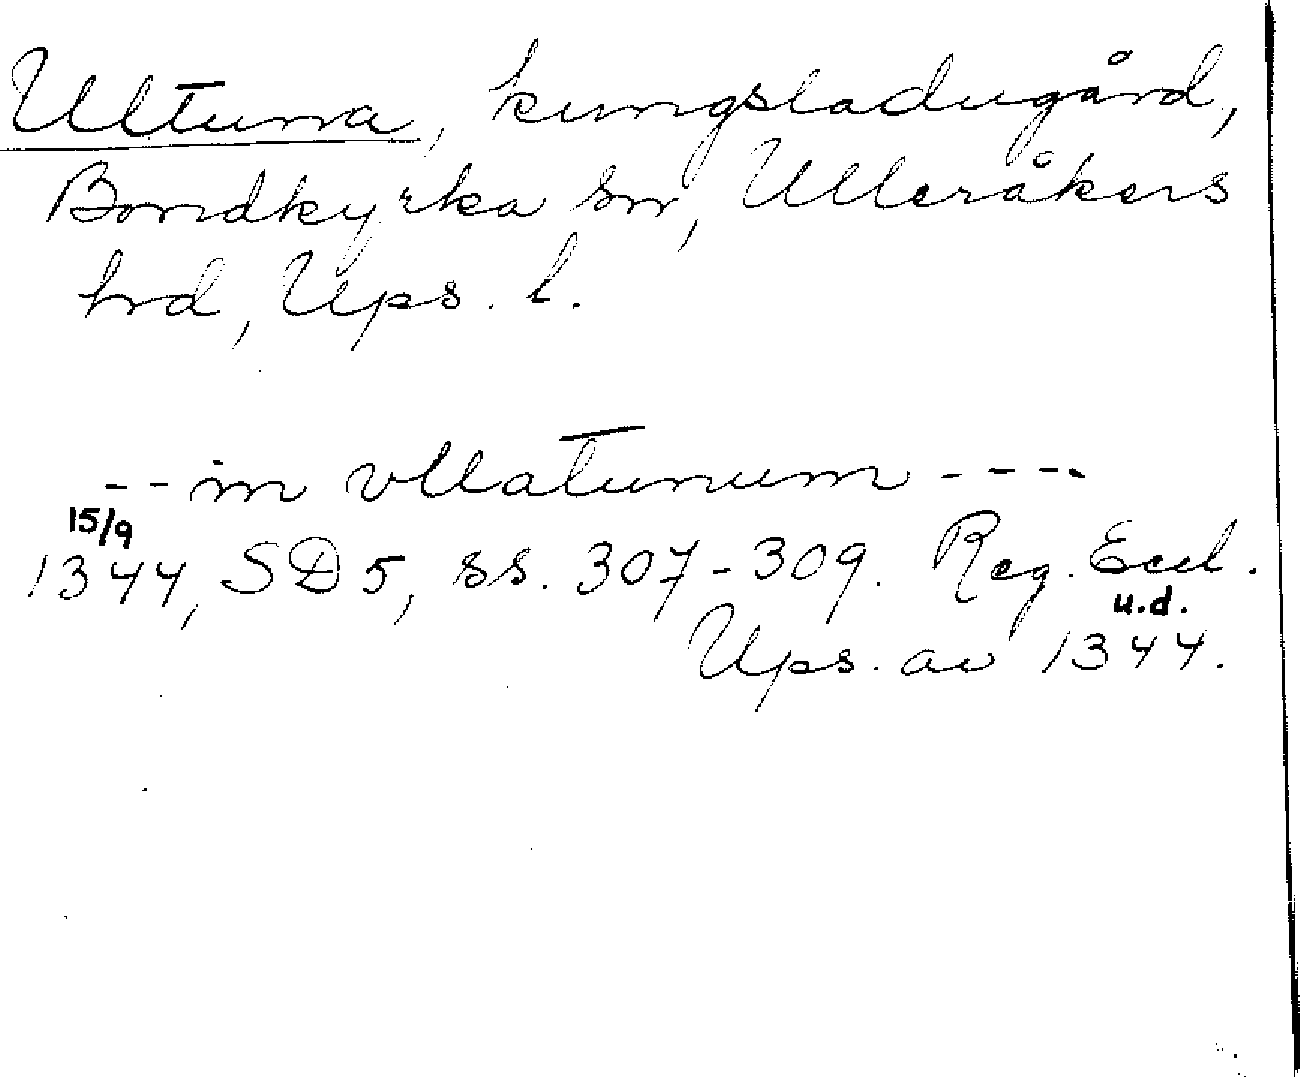 Ultuna, kungsladugård,
Bondkyrka sn, Ulleråkers
hrd, Ups. l.
-- in vllatunum ----
15/9
1344, SD 5, ss. 307-309. Reg. Eccl.
u.d.
Ups. av 1344.